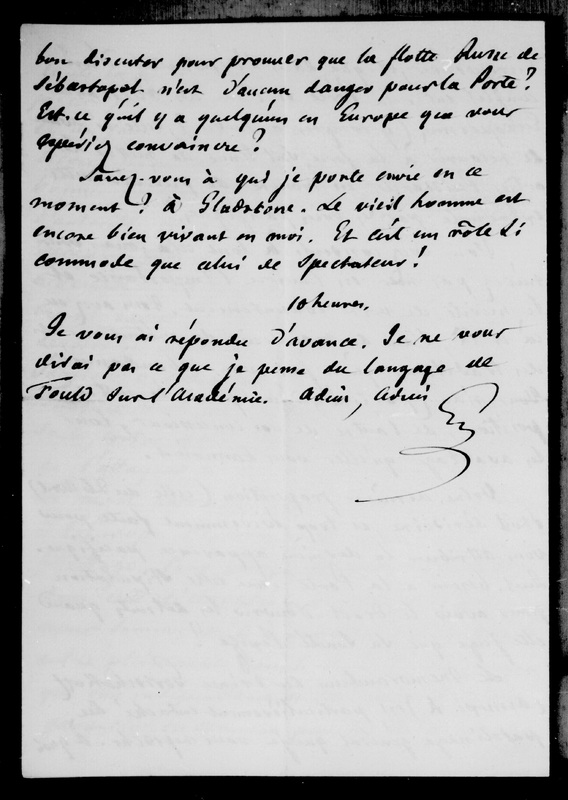 bon discuter pour prouver que la flotte Russe de
Sébastopol n'est d'aucun danger pour la Porte?
Est-ce qu'il y a quelqu'un en Europe que vous
espériez convaincre?
Savez-vous à qui je porte envie en ce
moment? à Gladstone. Le vieil homme est
encore bien vivant en moi. Et c'est un rôle si
commode que celui de spectateur!
10 heures.
Je vous ai répondu d'avance. Je ne vous
dirai pas ce que je pense du langage de
Fould sur l'Académie. Adieu, adieu